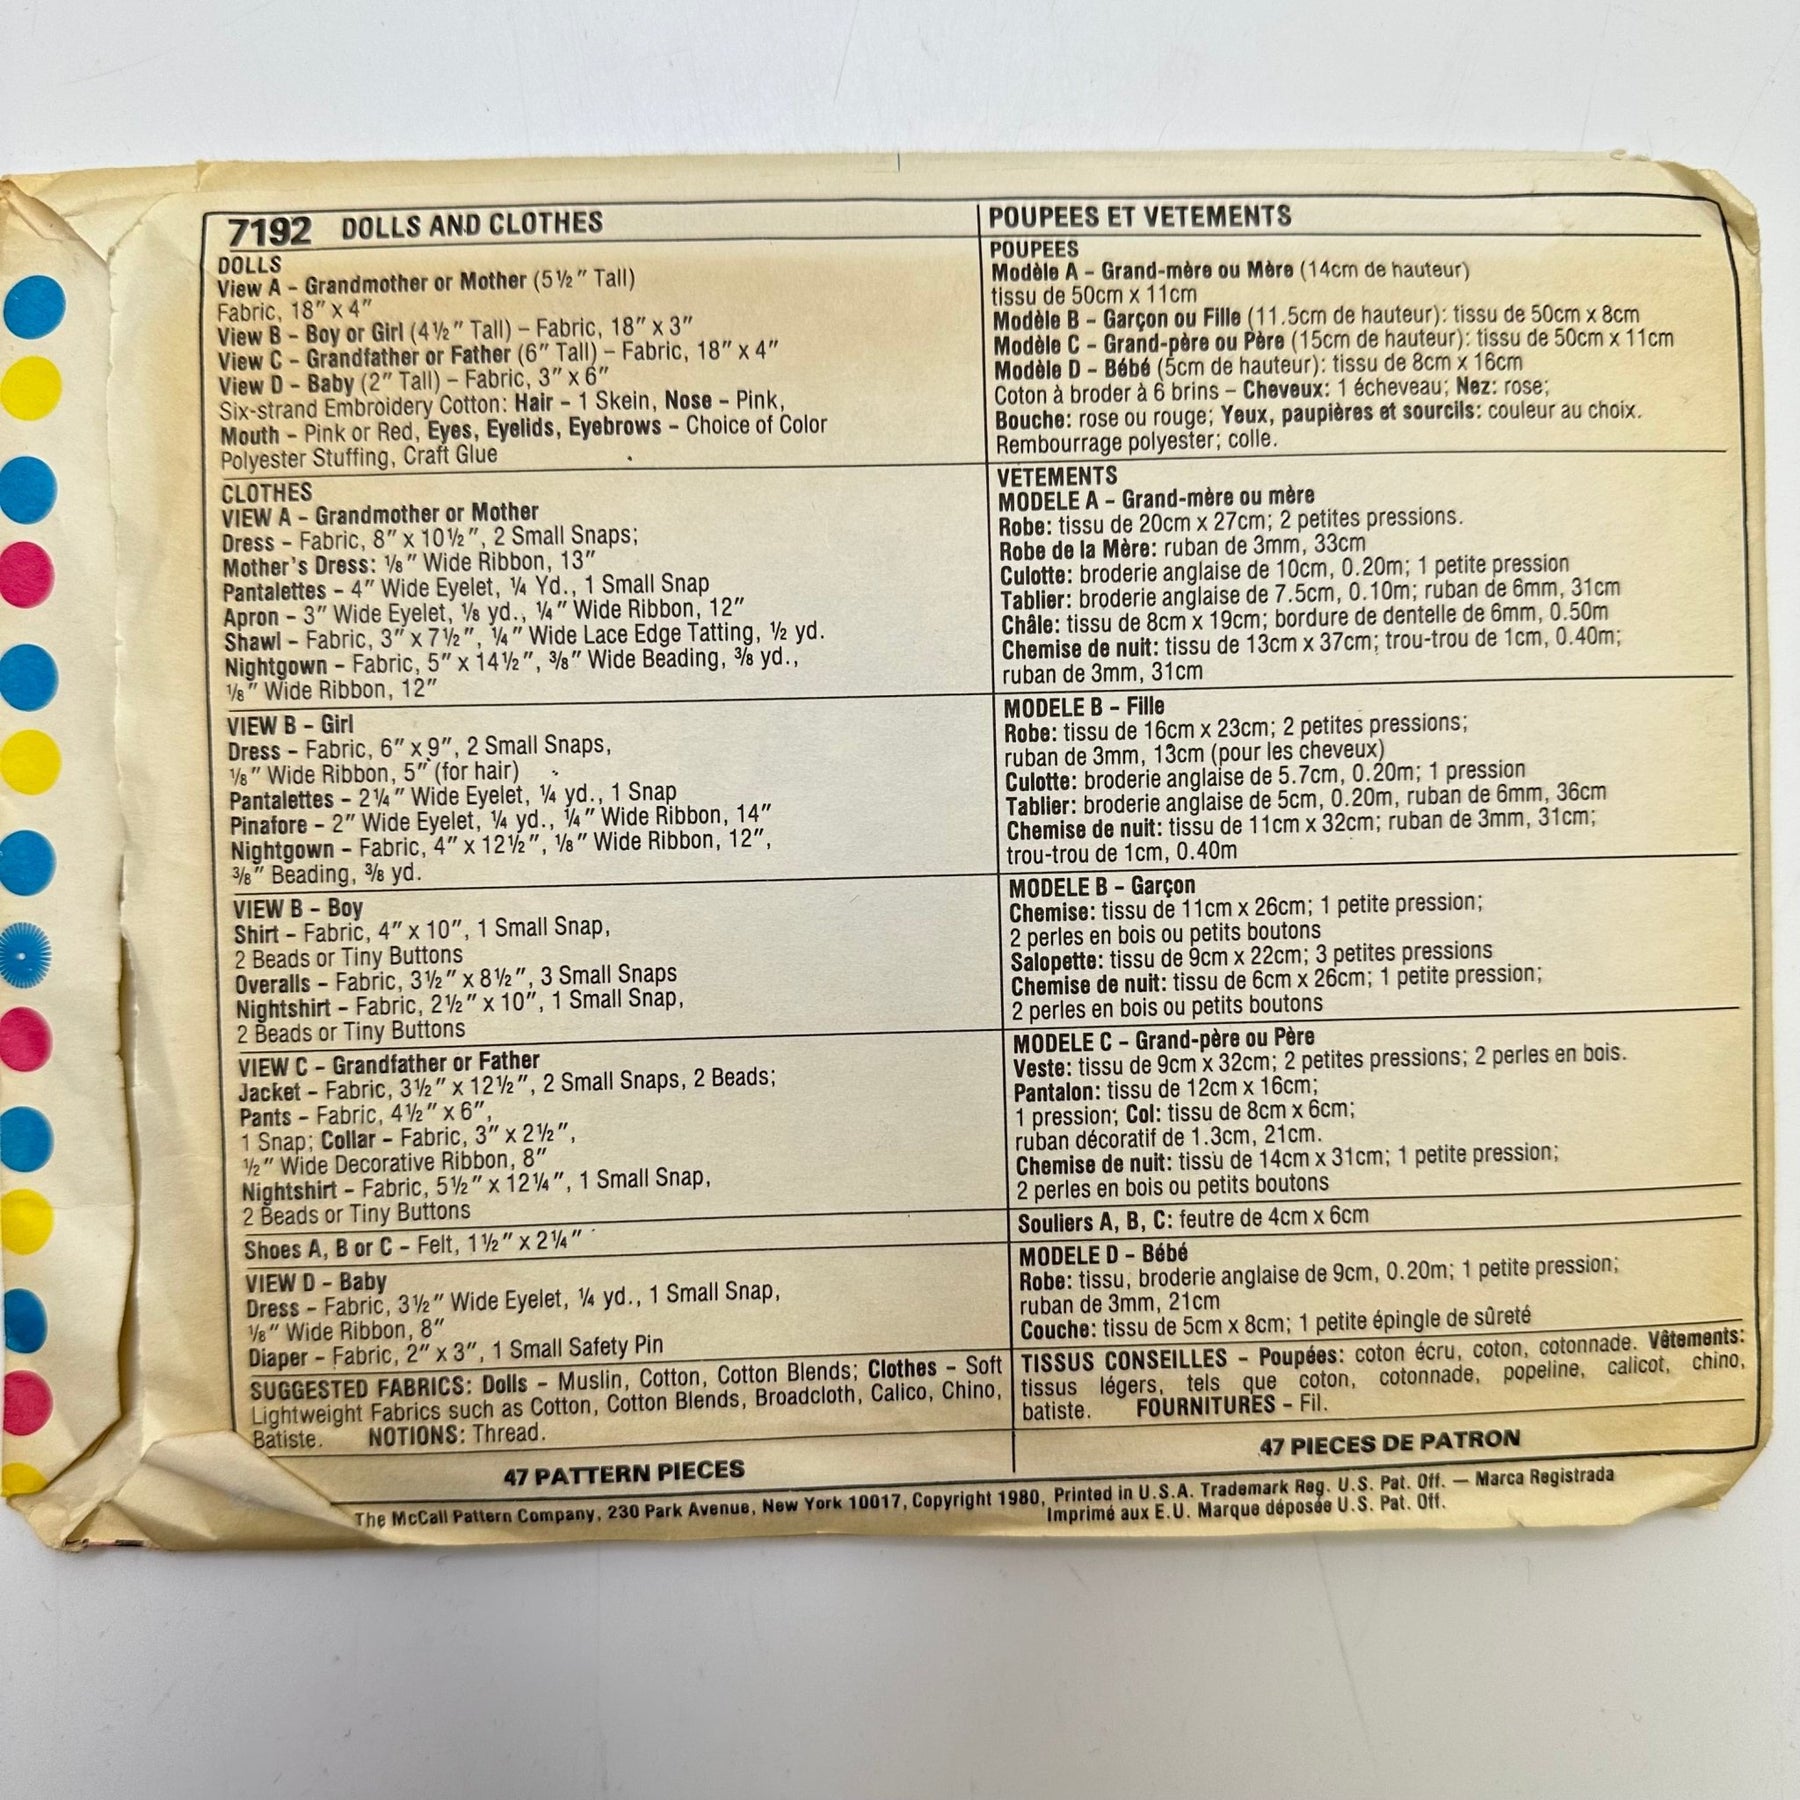 7192 DOLLS AND CLOTHES
DOLLS
View A – Grandmother or Mother (5½" Tall)
Fabric, 18" x 4"
View B – Boy or Girl (4½" Tall) – Fabric, 18" x 3"
View C – Grandfather or Father (6" Tall) – Fabric, 18" x 4"
View D – Baby (2" Tall) – Fabric, 3" x 6"
Six-strand Embroidery Cotton: Hair – 1 Skein, Nose – Pink,
Mouth – Pink or Red, Eyes, Eyelids, Eyebrows – Choice of Color
Polyester Stuffing, Craft Glue
CLOTHES
VIEW A – Grandmother or Mother
Dress – Fabric, 8" x 10½", 2 Small Snaps;
Mother's Dress: ⅛" Wide Ribbon, 13"
Pantalettes – 4" Wide Eyelet, ¼ Yd., 1 Small Snap
Apron – 3" Wide Eyelet, ⅛ yd., ¼" Wide Ribbon, 12"
Shawl – Fabric, 3" x 7½", ¼" Wide Lace Edge Tatting, ½ yd.
Nightgown – Fabric, 5" x 14½", ⅜" Wide Beading, ⅜ yd.,
⅛" Wide Ribbon, 12"
VIEW B – Girl
Dress – Fabric, 6" x 9", 2 Small Snaps,
⅛" Wide Ribbon, 5" (for hair)
Pantalettes – 2¼" Wide Eyelet, ¼ yd., 1 Snap
Pinafore – 2" Wide Eyelet, ¼ yd., ¼" Wide Ribbon, 14"
Nightgown – Fabric, 4" x 12½", ⅛" Wide Ribbon, 12",
⅜" Beading, ⅜ yd.
VIEW B – Boy
Shirt – Fabric, 4" x 10", 1 Small Snap,
2 Beads or Tiny Buttons
Overalls – Fabric, 3½" x 8½", 3 Small Snaps
Nightshirt – Fabric, 2½" x 10", 1 Small Snap,
2 Beads or Tiny Buttons
VIEW C – Grandfather or Father
Jacket – Fabric, 3½" x 12½", 2 Small Snaps, 2 Beads;
Pants – Fabric, 4½" x 6",
1 Snap; Collar – Fabric, 3" x 2½",
½" Wide Decorative Ribbon, 8"
Nightshirt – Fabric, 5½" x 12¼", 1 Small Snap,
2 Beads or Tiny Buttons
Shoes A, B or C – Felt, 1½" x 2¼"
VIEW D – Baby
Dress – Fabric, 3½" Wide Eyelet, ¼ yd., 1 Small Snap,
⅛" Wide Ribbon, 8"
Diaper – Fabric, 2" x 3", 1 Small Safety Pin
SUGGESTED FABRICS: Dolls – Muslin, Cotton, Cotton Blends; Clothes – Soft
Lightweight Fabrics such as Cotton, Cotton Blends, Broadcloth, Calico, Chino,
Batiste. NOTIONS: Thread.
47 PATTERN PIECES
POUPEES ET VETEMENTS
POUPEES
Modèle A – Grand-mère ou Mère (14cm de hauteur)
tissu de 50cm x 11cm
Modèle B – Garçon ou Fille (11.5cm de hauteur): tissu de 50cm x 8cm
Modèle C – Grand-père ou Père (15cm de hauteur): tissu de 50cm x 11cm
Modèle D – Bébé (5cm de hauteur): tissu de 8cm x 16cm
Coton à broder à 6 brins – Cheveux: 1 écheveau; Nez: rose;
Bouche: rose ou rouge; Yeux, paupières et sourcils: couleur au choix.
Rembourrage polyester; colle.
VETEMENTS
MODELE A – Grand-mère ou mère
Robe: tissu de 20cm x 27cm; 2 petites pressions.
Robe de la Mère: ruban de 3mm, 33cm
Culotte: broderie anglaise de 10cm, 0.20m; 1 petite pression
Tablier: broderie anglaise de 7.5cm, 0.10m; ruban de 6mm, 31cm
Châle: tissu de 8cm x 19cm; bordure de dentelle de 6mm, 0.50m
Chemise de nuit: tissu de 13cm x 37cm; trou-trou de 1cm, 0.40m;
ruban de 3mm, 31cm
MODELE B – Fille
Robe: tissu de 16cm x 23cm; 2 petites pressions;
ruban de 3mm, 13cm (pour les cheveux)
Culotte: broderie anglaise de 5.7cm, 0.20m; 1 pression
Tablier: broderie anglaise de 5cm, 0.20m, ruban de 6mm, 36cm
Chemise de nuit: tissu de 11cm x 32cm; ruban de 3mm, 31cm;
trou-trou de 1cm, 0.40m
MODELE B – Garçon
Chemise: tissu de 11cm x 26cm; 1 petite pression;
2 perles en bois ou petits boutons
Salopette: tissu de 9cm x 22cm; 3 petites pressions
Chemise de nuit: tissu de 6cm x 26cm; 1 petite pression;
2 perles en bois ou petits boutons
MODELE C – Grand-père ou Père
Veste: tissu de 9cm x 32cm; 2 petites pressions; 2 perles en bois.
Pantalon: tissu de 12cm x 16cm;
1 pression; Col: tissu de 8cm x 6cm;
ruban décoratif de 1.3cm, 21cm.
Chemise de nuit: tissu de 14cm x 31cm; 1 petite pression;
2 perles en bois ou petits boutons
Souliers A, B, C: feutre de 4cm x 6cm
MODELE D – Bébé
Robe: tissu, broderie anglaise de 9cm, 0.20m; 1 petite pression;
ruban de 3mm, 21cm
Couche: tissu de 5cm x 8cm; 1 petite épingle de sûreté
TISSUS CONSEILLES – Poupées: coton écru, coton, cotonnade. Vêtements:
tissus légers, tels que coton, cotonnade, popeline, calicot, chino,
batiste. FOURNITURES – Fil.
47 PIECES DE PATRON
The McCall Pattern Company, 230 Park Avenue, New York 10017, Copyright 1980, Printed in U.S.A. Trademark Reg. U.S. Pat. Off. — Marca Registrada
Imprimé aux E.U. Marque déposée U.S. Pat. Off.